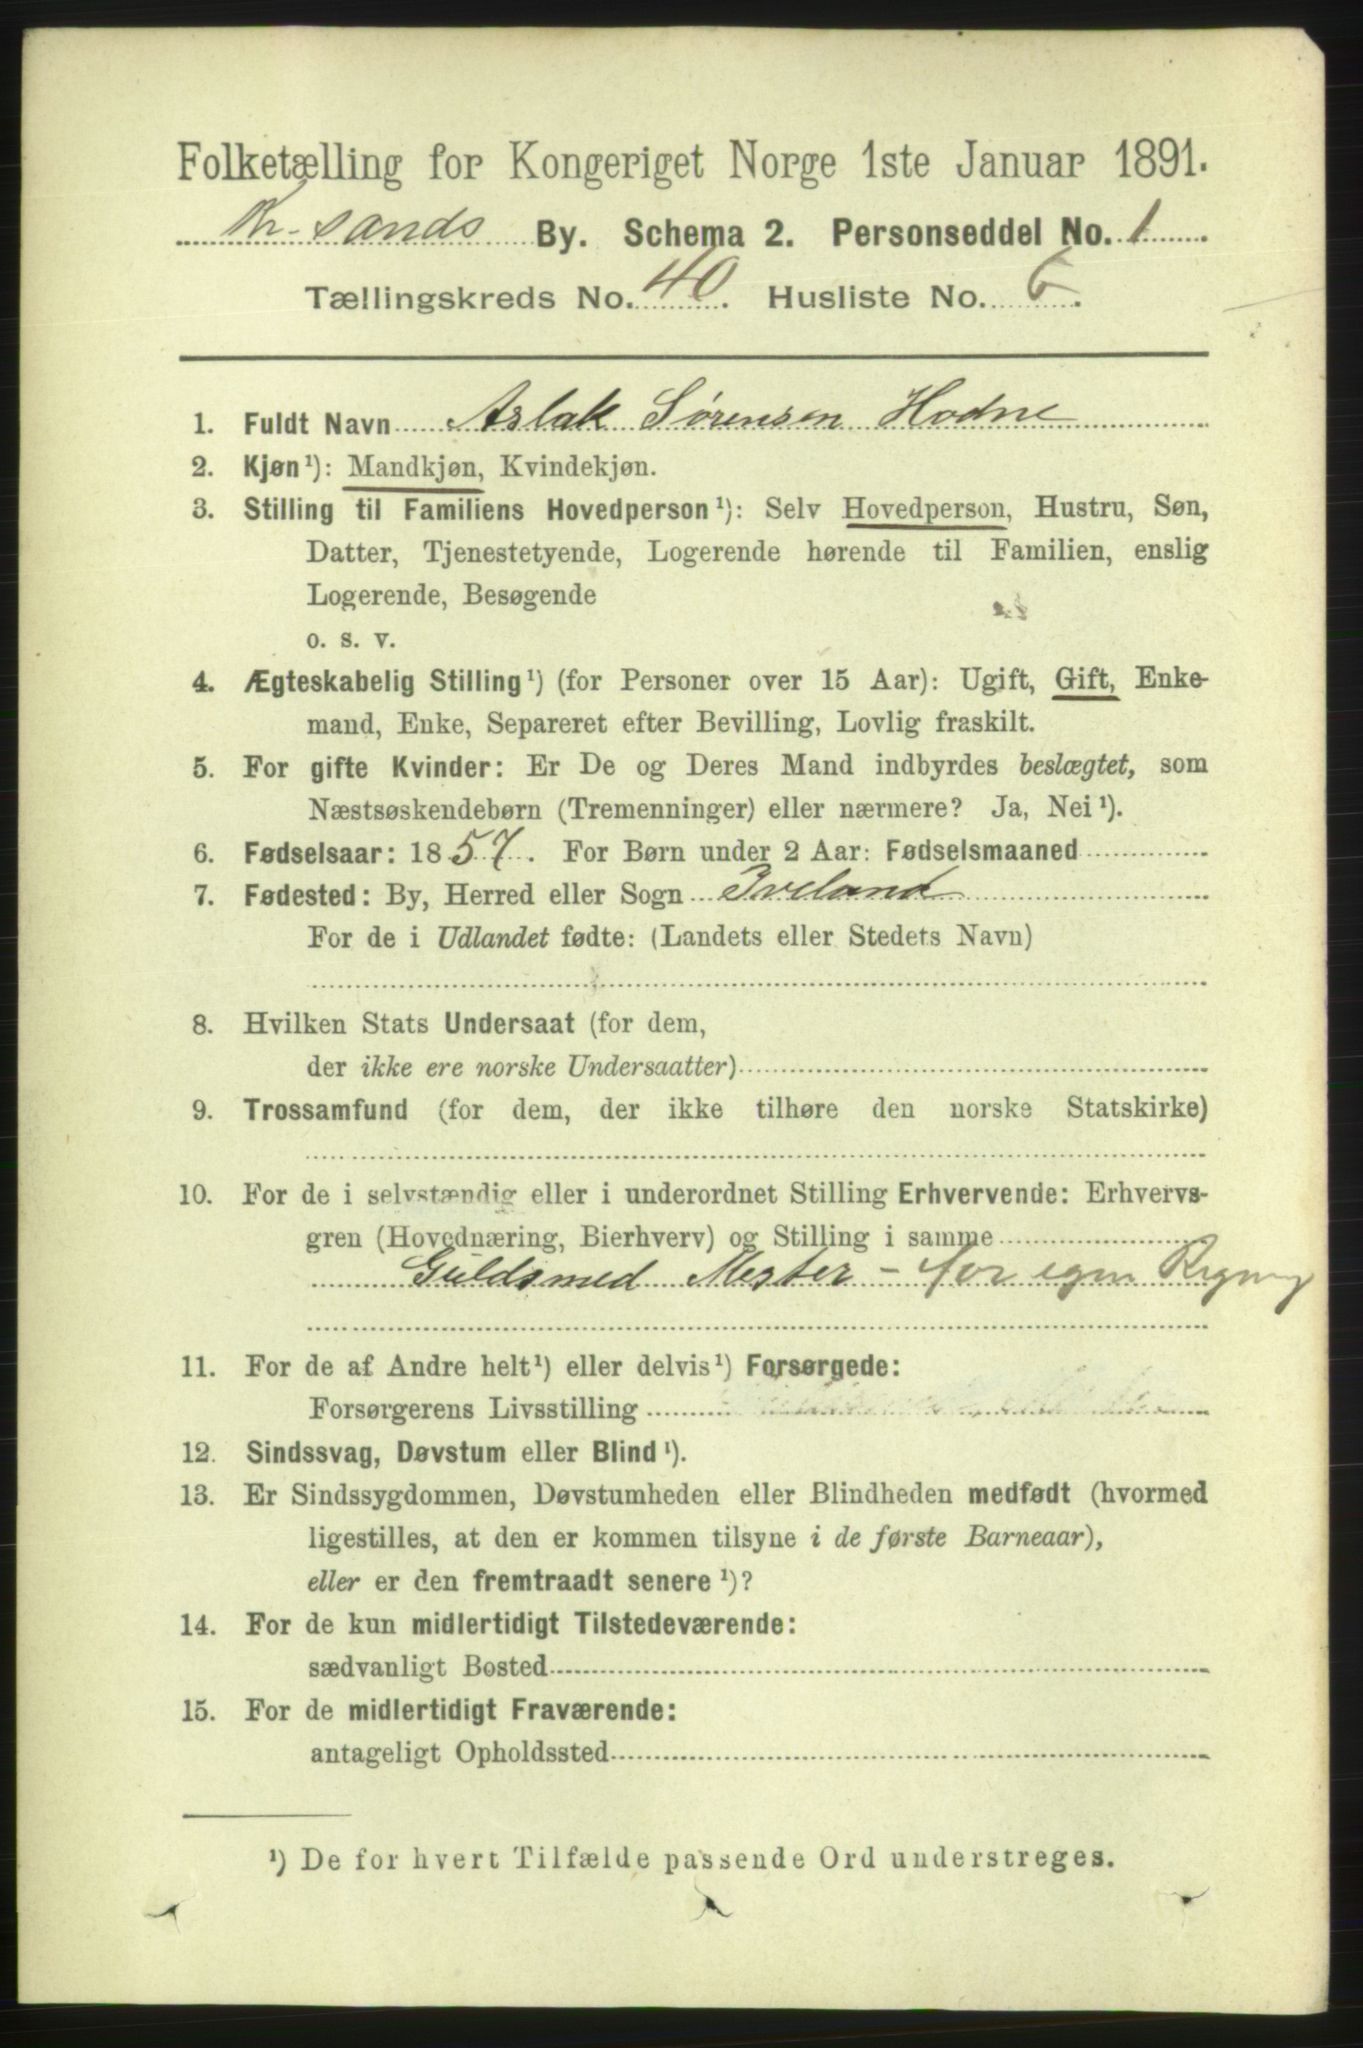 Folketælling for Kongeriget Norge 1ste Januar 1891.
Kr.sands By. Schema 2. Personseddel No. 1
Tællingskreds No. 40. Husliste No. 6.
1. Fuldt Navn Aslak Sørensen Hodne
2. Kjøn¹): Mandkjøn, Kvindekjøn.
3. Stilling til Familiens Hovedperson¹): Selv Hovedperson, Hustru, Søn,
Datter, Tjenestetyende, Logerende hørende til Familien, enslig
Logerende, Besøgende
o. s. v.
4. Ægteskabelig Stilling¹) (for Personer over 15 Aar): Ugift, Gift, Enke-
mand, Enke, Separeret efter Bevilling, Lovlig fraskilt.
5. For gifte Kvinder: Er De og Deres Mand indbyrdes beslægtet, som
Næstsøskendebørn (Tremenninger) eller nærmere? Ja, Nei¹).
6. Fødselsaar: 1857. For Børn under 2 Aar: Fødselsmaaned
7. Fødested: By, Herred eller Sogn Iveland
For de i Udlandet fødte: (Landets eller Stedets Navn)
8. Hvilken Stats Undersaat (for dem,
der ikke ere norske Undersaatter)
9. Trossamfund (for dem, der ikke tilhøre den norske Statskirke)
10. For de i selvstændig eller i underordnet Stilling Erhvervende: Erhvervs-
gren (Hovednæring, Bierhverv) og Stilling i samme
Guldsmed Mester - for egen Regning
11. For de af Andre helt¹) eller delvis¹) Forsørgede:
Forsørgerens Livsstilling
12. Sindssvag, Døvstum eller Blind¹).
13. Er Sindssygdommen, Døvstumheden eller Blindheden medfødt (hvormed
ligestilles, at den er kommen tilsyne i de første Barneaar),
eller er den fremtraadt senere¹)?
14. For de kun midlertidigt Tilstedeværende:
sædvanligt Bosted
15. For de midlertidigt Fraværende:
antageligt Opholdssted
¹) De for hvert Tilfælde passende Ord understreges.